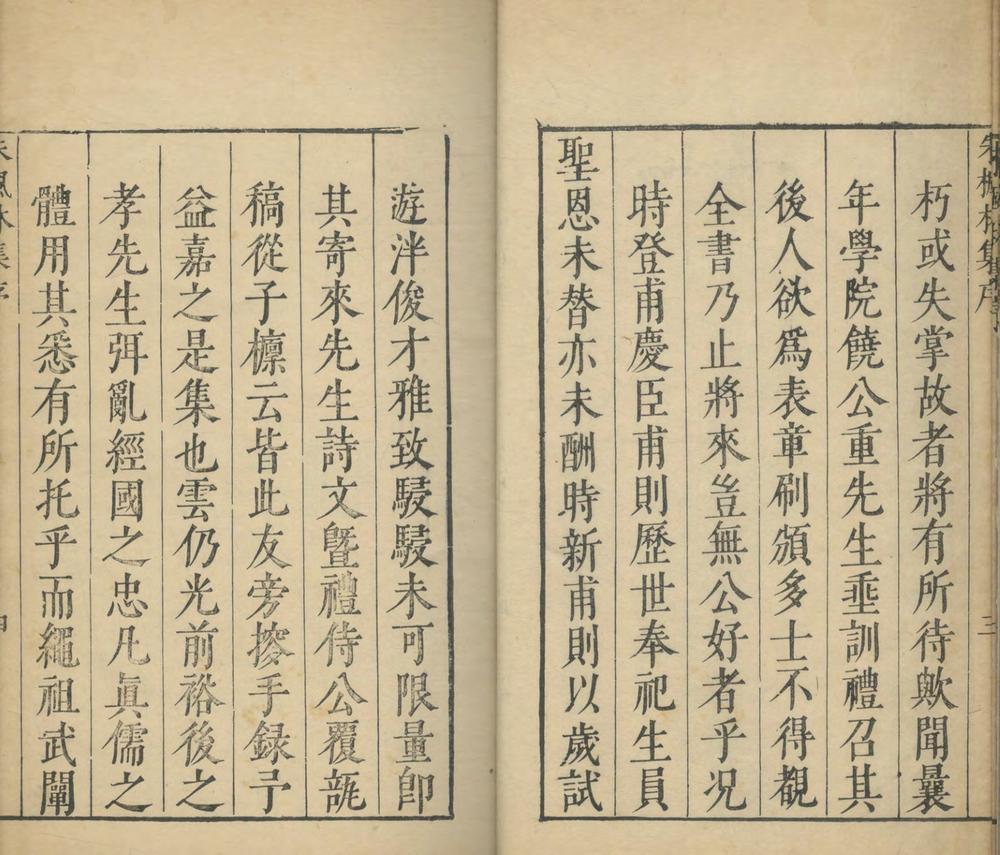 朱楓林集序
三
朽或失掌故者將有所待歟聞曩
年學院饒公重先生垂訓禮召其
後人欲爲表章刷頒多士不得覩
全書乃止將來豈無公好者乎况
時登甫慶臣甫則歷世奉祀生員
聖恩未替亦未酬時新甫則以歲試
遊泮俊才雅致駸駸未可限量卽
其寄來先生詩文曁禮侍公覆瓿
稿從子檩云皆此友旁搜手録予
益嘉之是集也雲仍光前裕後之
孝先生弭亂經國之忠凡眞儒之
體用其悉有所托乎而繩祖武闡
朱楓林集序
四